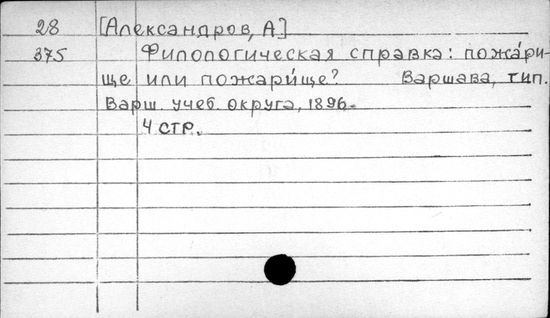 28 [Александров, А]
375 Филологическая справка: пожа́ри-
ще или пожари́ще? Варшава, тип.
Варш. учеб. округа, 1896.
4 стр.